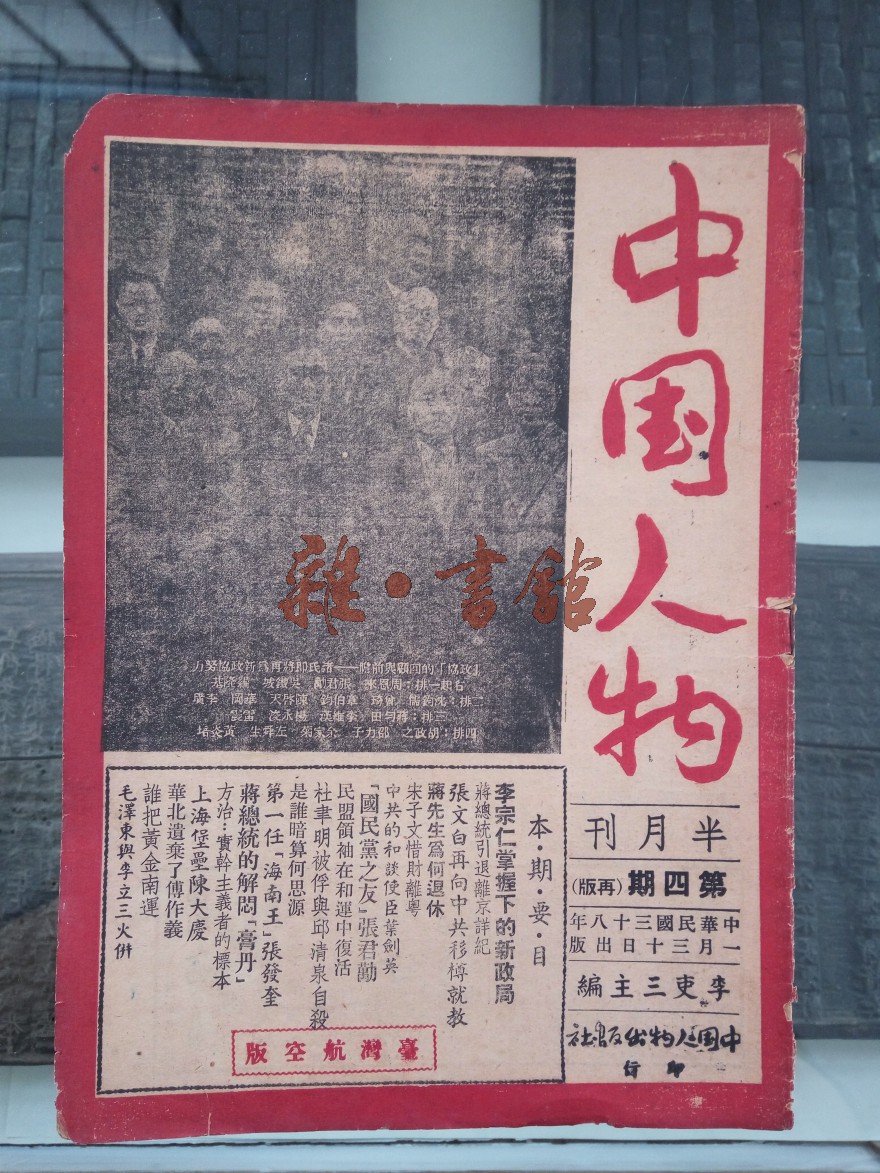 中国人物
半月刊
第四期(再版)
中華民國三十八年
一月三十日出版
李吏三主編
中国人物出版社
印行
「政協」的回顧與前瞻——諸氏即將再爲新政協努力
右起一排:周恩來 張君勱 吳鐵城
章伯鈞 陳啓天
蔣勻田
四排:胡政之 邵力子 余家菊 左舜生 黃炎培
本·期·要·目
李宗仁掌握下的新政局
蔣總統引退離京詳紀
張文白再向中共移樽就教
蔣先生爲何退休
宋子文惜財離粵
中共的和談使臣葉劍英
「國民黨之友」張君勱
民盟領袖在和運中復活
杜聿明被俘與邱清泉自殺
是誰暗算何思源
第一任「海南王」張發奎
蔣總統的解悶「膏丹」
方治:實幹主義者的標本
上海堡壘陳大慶
華北遺棄了傅作義
誰把黃金南運
毛澤東與李立三火併
臺灣航空版
雜·書館